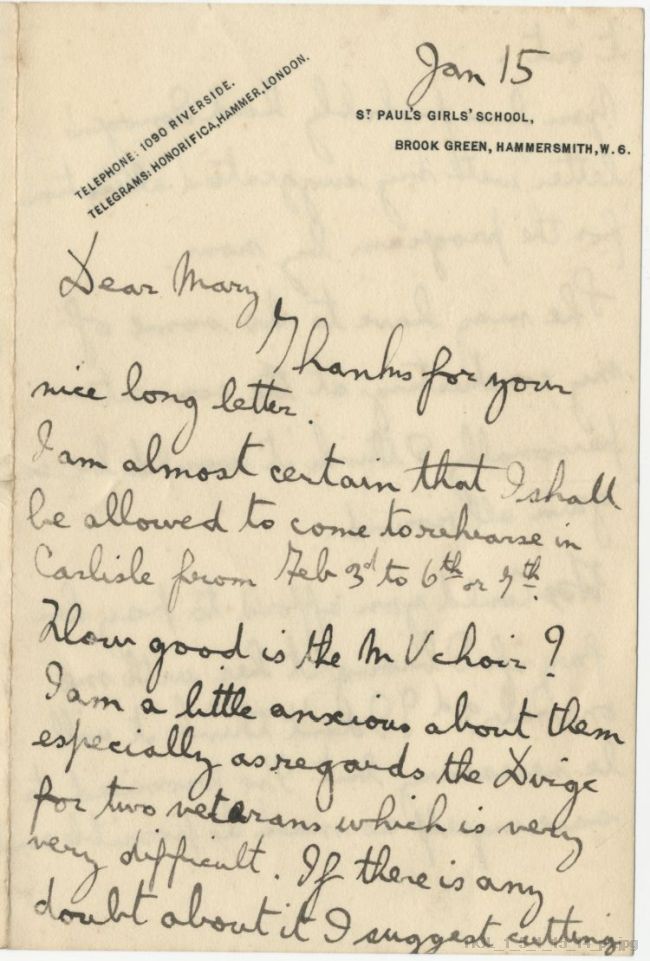 Jan 15
TELEPHONE: 1090 RIVERSIDE.
TELEGRAMS: HONORIFICA, HAMMER, LONDON.
ST PAUL'S GIRLS' SCHOOL,
BROOK GREEN, HAMMERSMITH, W. 6.
Dear Mary
Thanks for your
nice long letter.
I am almost certain that I shall
be allowed to come to rehearse in
Carlisle from Feb 3d to 6th or 7th.
How good is the M V choir?
I am a little anxious about them
especially as regards the Dirge
for two veterans which is very
very difficult. If there is any
doubt about it I suggest cutting